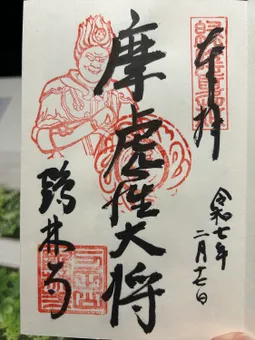 奉拝
令和七年
二月十七日
摩虎羅大将
鶴林寺